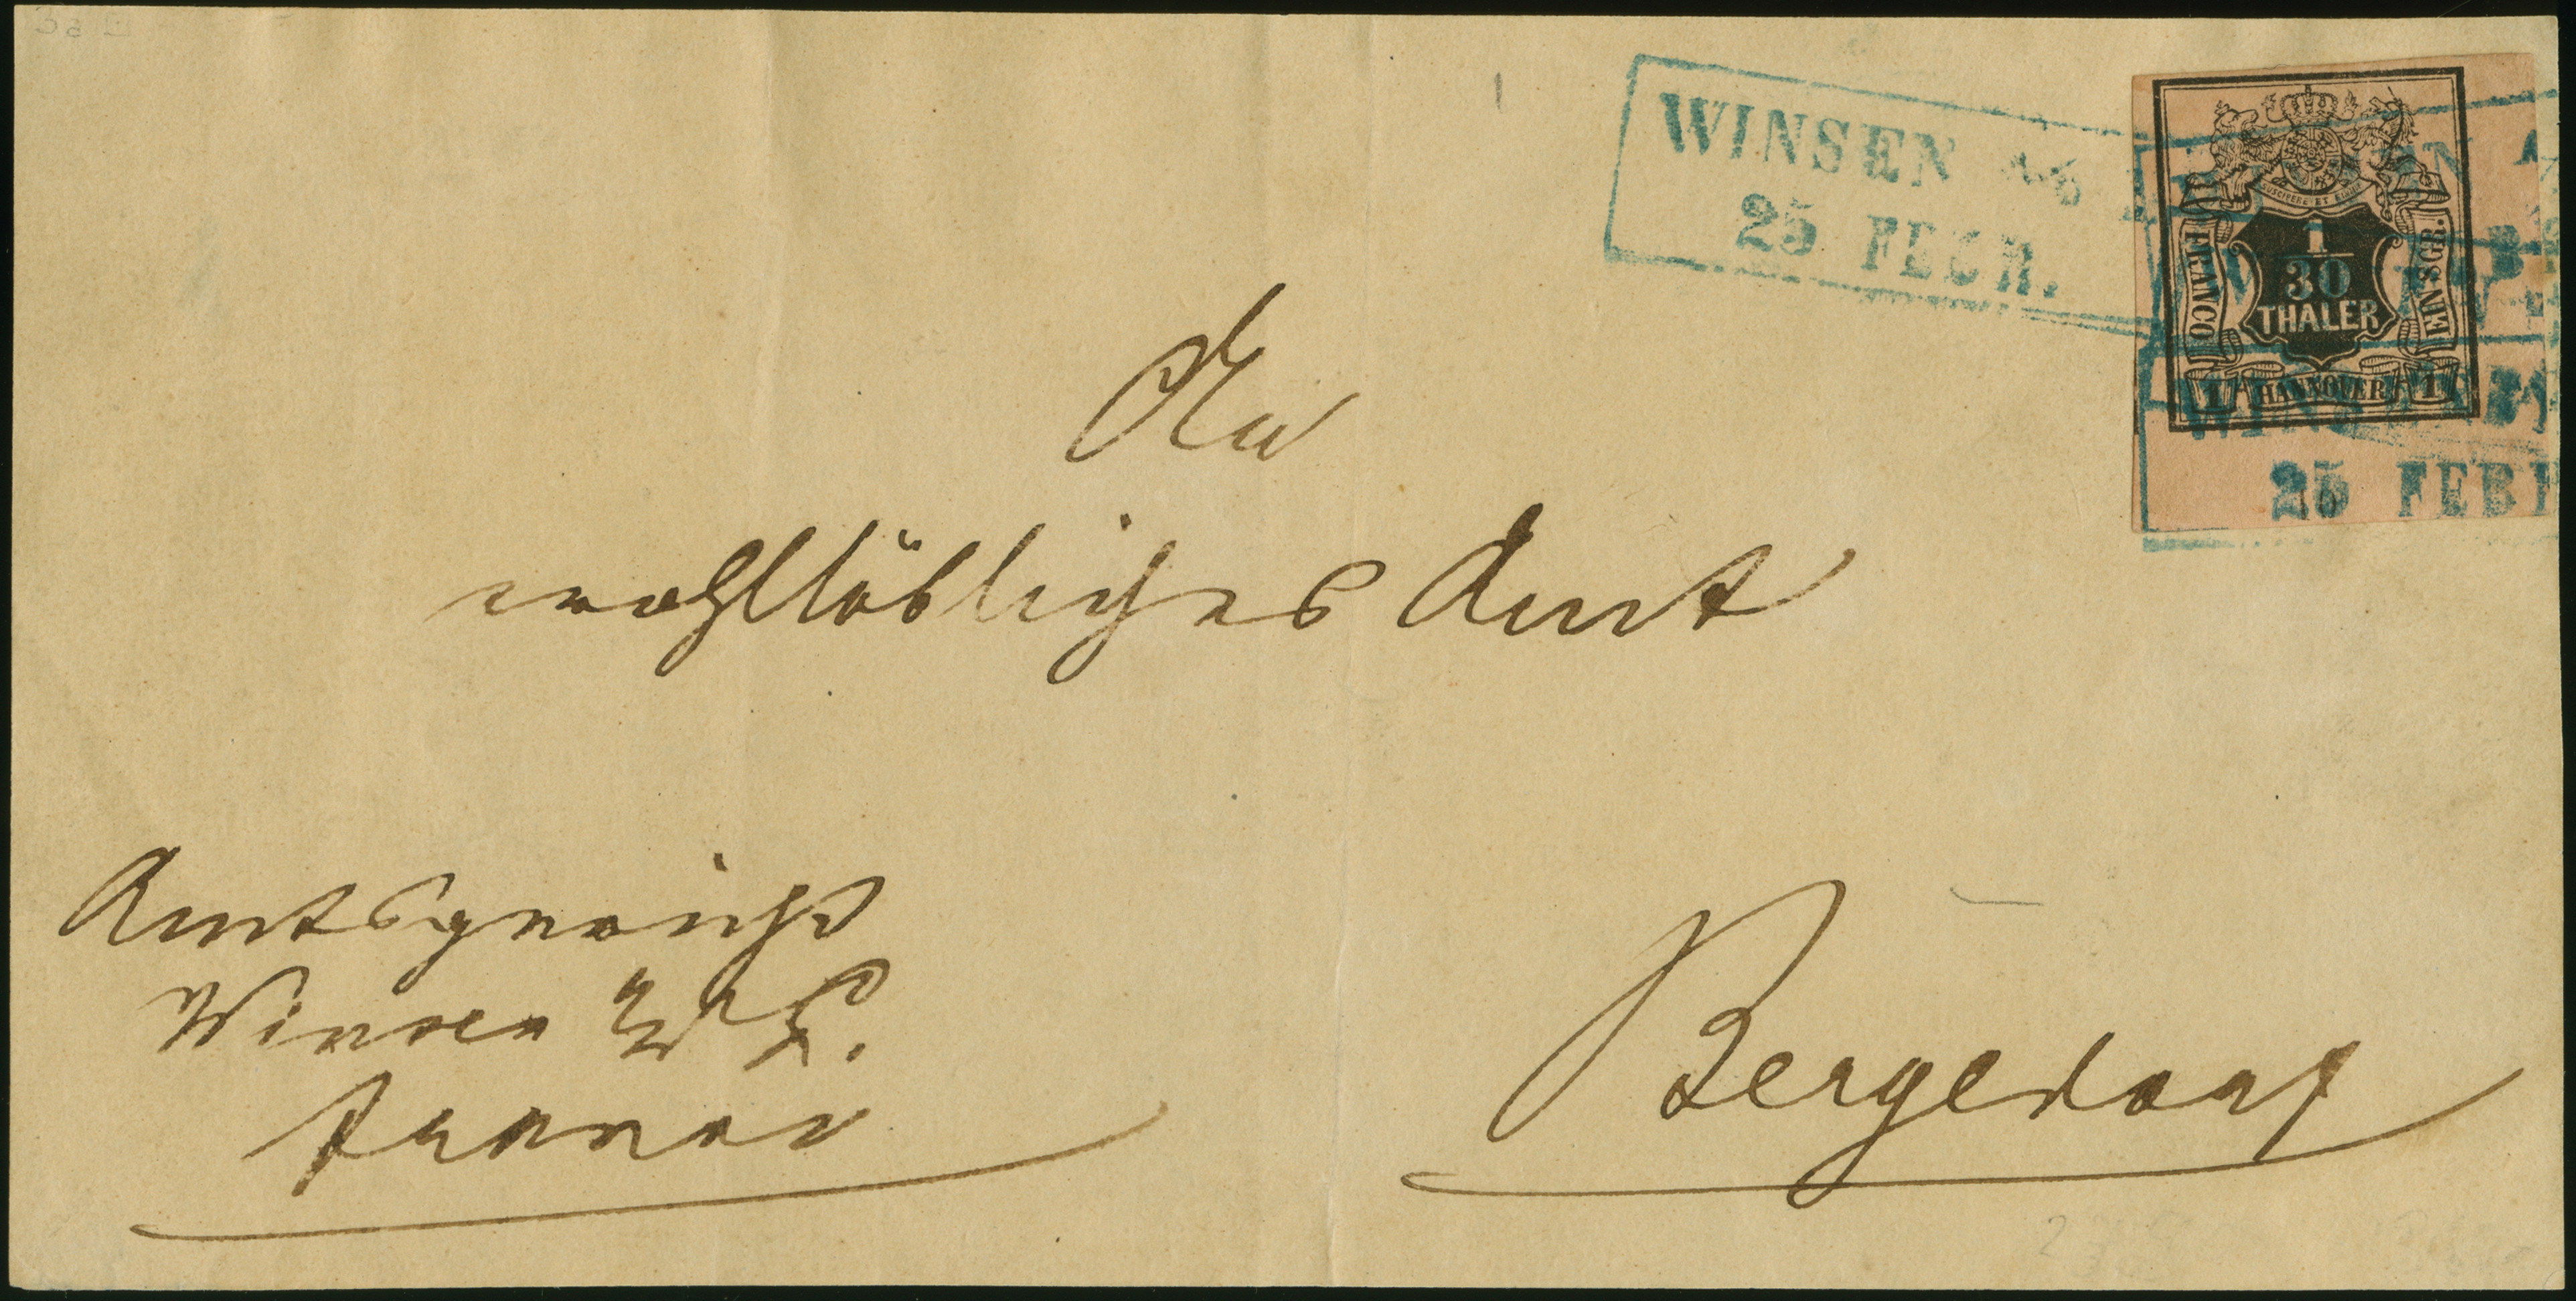 WINSEN A. D. L.
25 FEBR.
SUSCIPERE ET FINIRE
FRANCO
1
30
THALER
EIN SGR.
1 HANNOVER 1
WINSEN
25 FEBR
An
wohllöbliches Amt
Amtsgericht
Winsen a/L.
franco
Bergedorf